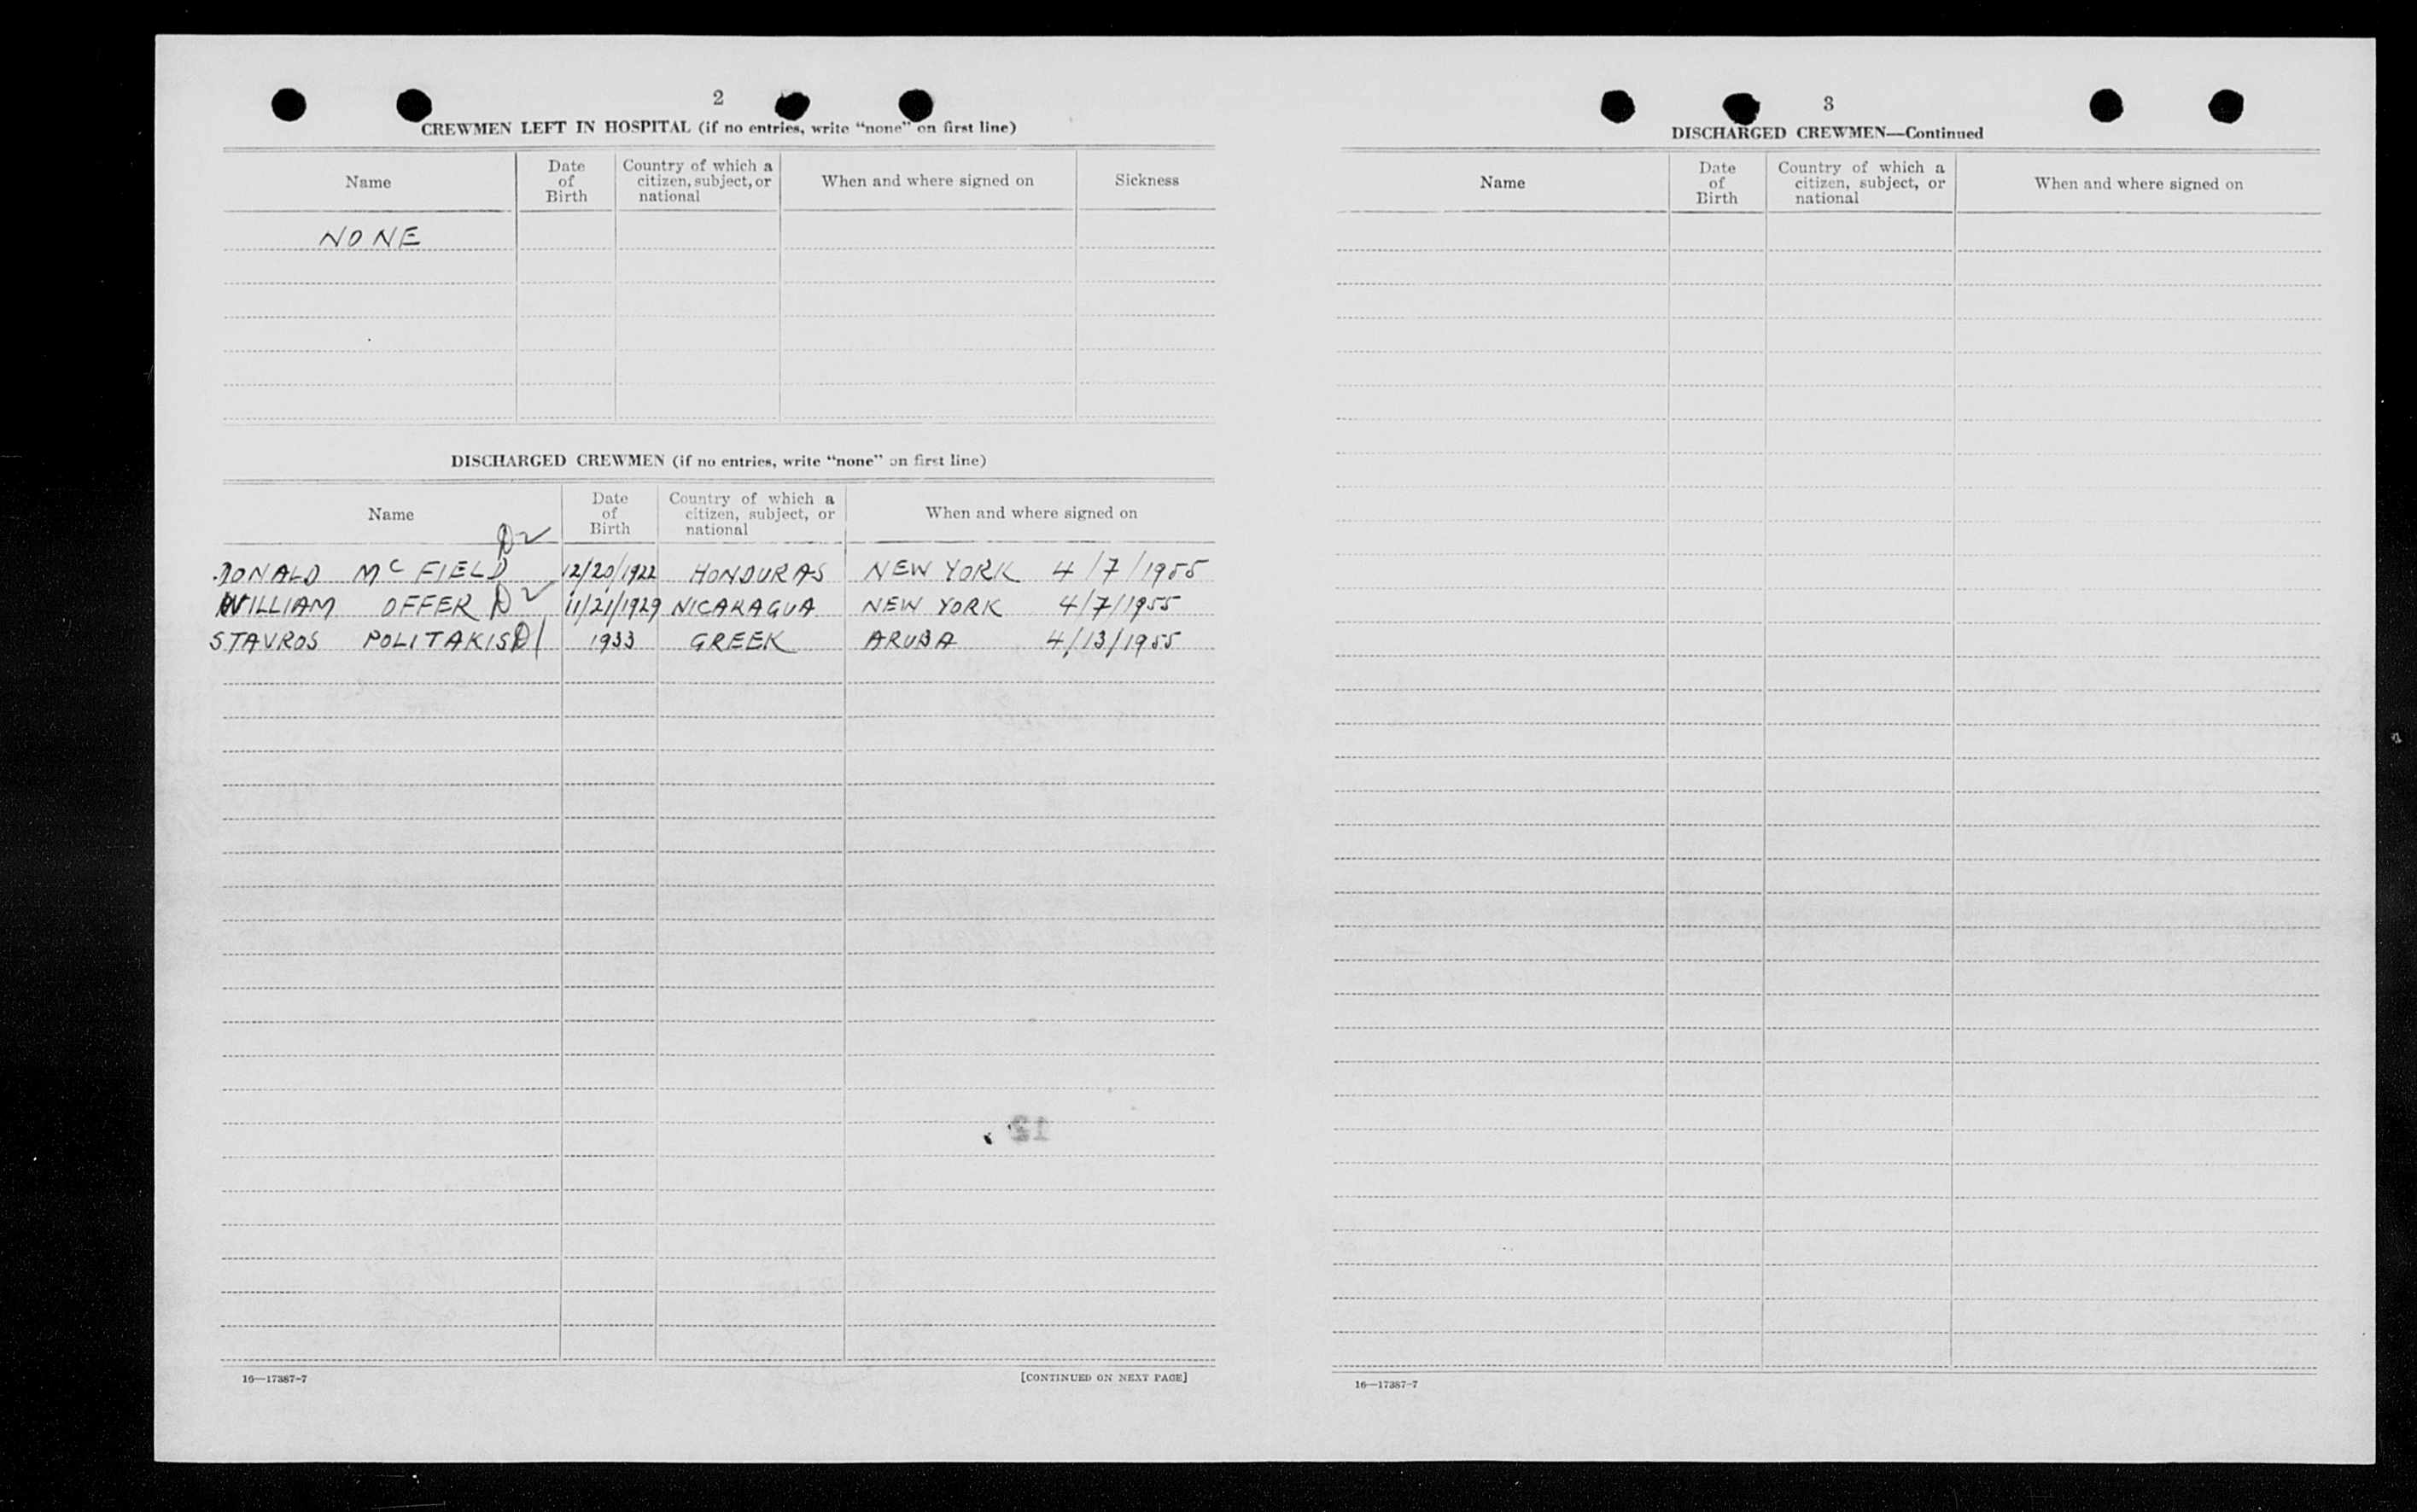 2
CREWMEN LEFT IN HOSPITAL (if no entries, write “none” on first line)
Name
Date of Birth
Country of which a citizen, subject, or national
When and where signed on
Sickness
NONE
DISCHARGED CREWMEN (if no entries, write “none” on first line)
Name
Date of Birth
Country of which a citizen, subject, or national
When and where signed on
DONALD Mc FIELD 12/20/1922 HONDURAS NEW YORK 4/7/1955
WILLIAM OFFER 11/21/1929 NICARAGUA NEW YORK 4/7/1955
STAVROS POLITAKIS 1933 GREEK ARUBA 4/13/1955
12
16—17387-7
[CONTINUED ON NEXT PAGE]
3
DISCHARGED CREWMEN—Continued
Name
Date of Birth
Country of which a citizen, subject, or national
When and where signed on
16—17387-7